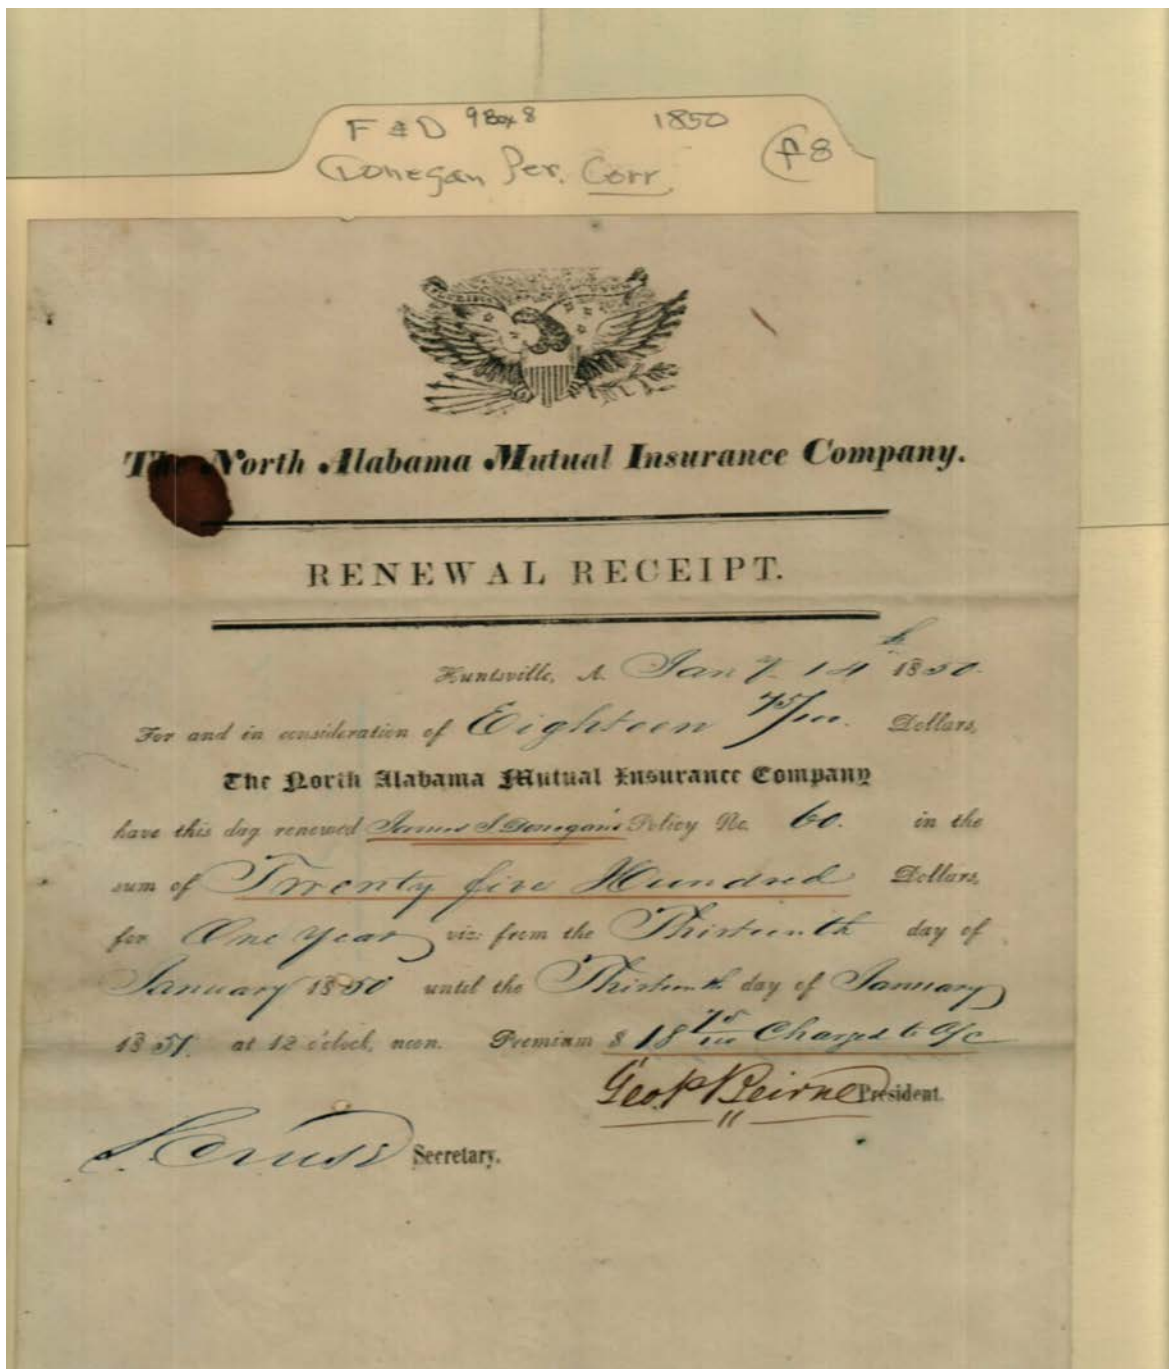 F & D 9 Box 8 1850
Donegan Per. Corr. f8
The North Alabama Mutual Insurance Company.
RENEWAL RECEIPT.
Huntsville, A. Jany. 14th 1850.
For and in consideration of Eighteen 75/100. Dollars,
The North Alabama Mutual Insurance Company
have this day renewed James J Donegan's Policy No. 60. in the
sum of Twenty five Hundred Dollars,
for One Year viz: from the Thirteenth day of
January 1850 until the Thirteenth day of January
1851. at 12 o'clock, noon. Premium $ 18 75/100 Charged to a/c
Geo P Beirne President.
S. Cruse Secretary.